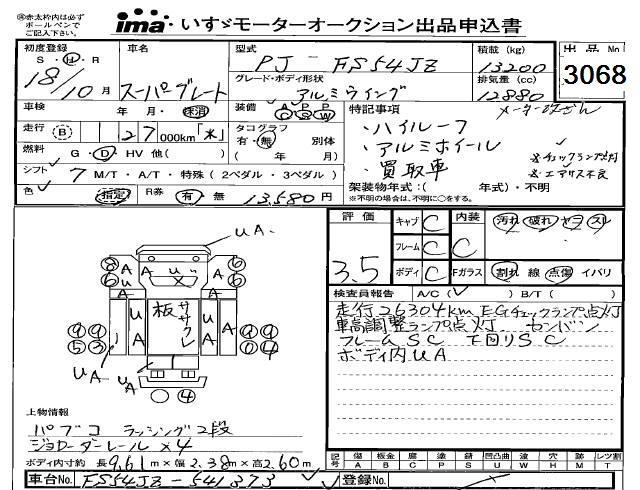 ㊟赤太枠内は必ず
ボールペンで
ご記入下さい。
ima・いすゞモーターオークション出品申込書
初度登録
S・H・R
18/10月
車名
スーパーグレート
型式
PJ-FS54JZ
グレード・ボディ形状
アルミウイング
積載 (kg)
13200
排気量 (cc)
12880
出品No
3068
車検 年 月・抹消
装備 A/C P/S P/W
特記事項
・ハイルーフ
・アルミホイール
・買取車
※チェックランプ点灯
※エアサス不良
走行 B 27 000km「不」
タコグラフ 有・無 別体
( 年 月)
燃料 G・D・HV 他( )
シフト 7 M/T・A/T・特殊(2ペダル・3ペダル)
架装物年式:( 年式)・不明
※不明の場合は、不明に○をする。
色 指定 R券 有・無 13,580円
評価
3.5
キャブ C
フレーム C
ボディ C
内装 C
Fガラス
汚れ 破れ ヤコ スレ
割れ 線 点傷 イバリ
検査員報告 A/C( ) B/T( )
走行26304km EGチェックランプ点灯
車高調整ランプ点灯 センバン
フレームSC 下回りSC
ボディ内UA
UA
板
ササクレ
UA
上物情報
パブコ ラッシング2段
ジョロダーレール×4
ボディ内寸約 長9.61m×幅2.38m×高2.60m
記号 傷 A 板金 B 腐 C 塗 P 錆 S 凹凸曲 U 波 W 穴 H 跡 M レツ割 T
車台No. FS54JZ-541373
登録No.